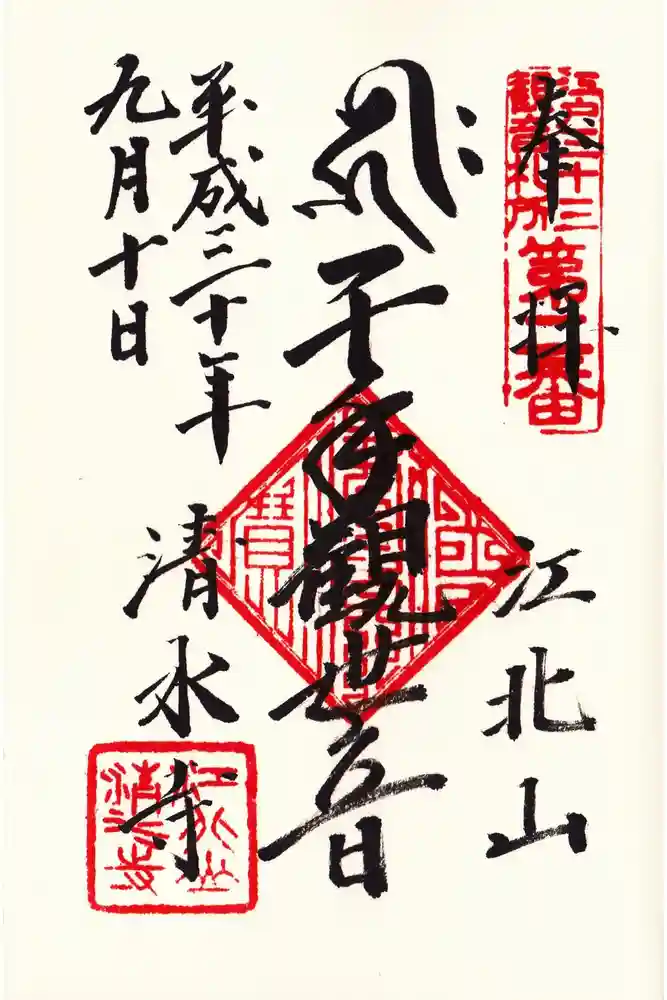 奉拝
江戸三十三
観音札所
第二番
江北山
千手観世音
平成三十年
九月十日
清水寺
江北山
清水寺